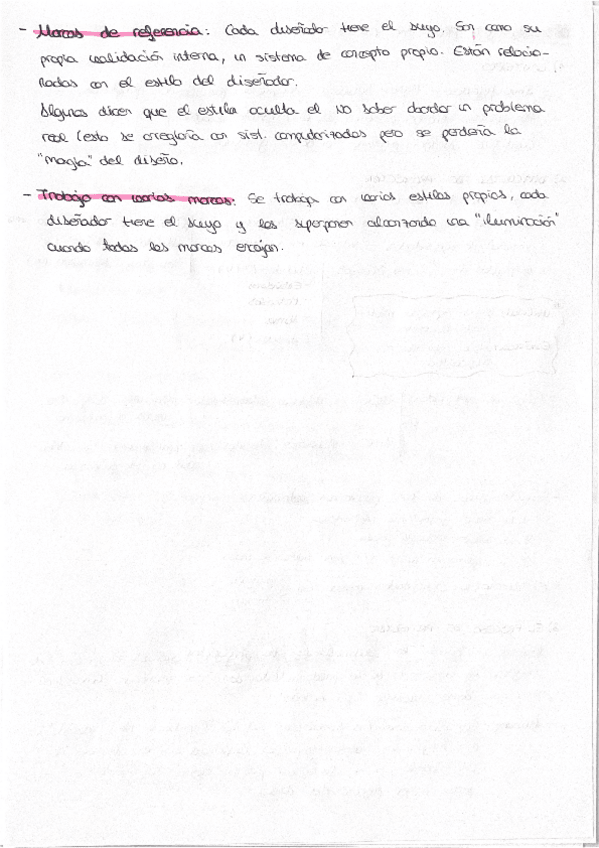 - Marcos de referencia: Cada diseñador tiene el suyo. Son como su
propia validación interna, un sistema de concepto propio. Están relacio-
nadas con el estilo del diseñador.
Algunos dicen que el estilo oculta el NO saber abordar un problema
real (esto se arreglaría con sist. computarizados pero se perdería la
"magia" del diseño.
- Trabajo con varios marcos: Se trabaja con varios estilos propios, cada
diseñador tiene el suyo y los superponen alcanzando una "iluminación"
cuando todos los marcos encajan.